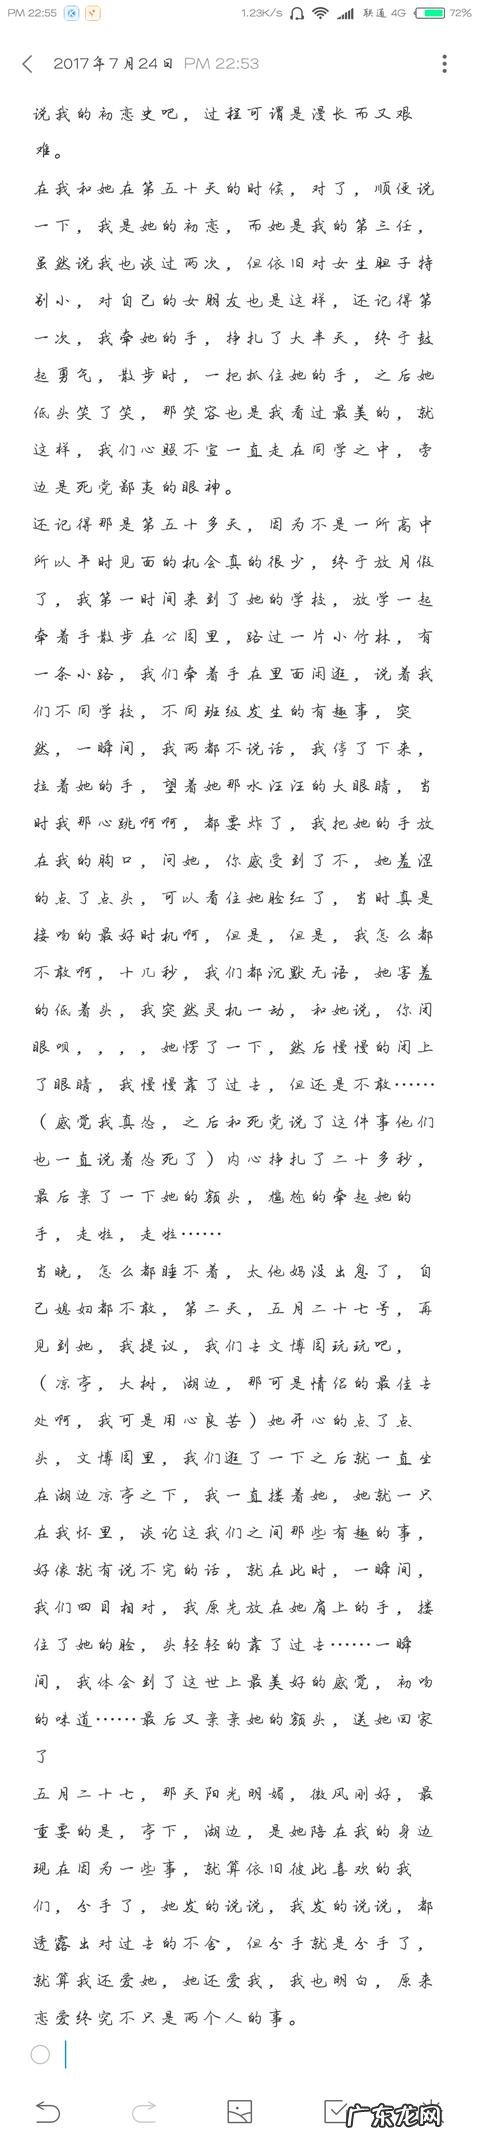 PM 22:55 1.23K/s 联通 4G 72%
2017年7月24日 PM 22:53
说我的初恋史吧，过程可谓是漫长而又艰
难。
在我和她在第五十天的时候，对了，顺便说
一下，我是她的初恋，而她是我的第三任，
虽然说我也谈过两次，但依旧对女生胆子特
别小，对自己的女朋友也是这样，还记得第
一次，我牵她的手，挣扎了大半天，终于鼓
起勇气，散步时，一把抓住她的手，之后她
低头笑了笑，那笑容也是我看过最美的，就
这样，我们心照不宣一直走在同学之中，旁
边是死党鄙夷的眼神。
还记得那是第五十多天，因为不是一所高中
所以平时见面的机会真的很少，终于放月假
了，我第一时间来到了她的学校，放学一起
牵着手散步在公园里，路过一片小竹林，有
一条小路，我们牵着手在里面闲逛，说着我
们不同学校，不同班级发生的有趣事，突
然，一瞬间，我两都不说话，我停了下来，
拉着她的手，望着她那水汪汪的大眼睛，当
时我那心跳啊啊，都要炸了，我把她的手放
在我的胸口，问她，你感受到了不，她羞涩
的点了点头，可以看住她脸红了，当时真是
接吻的最好时机啊，但是，但是，我怎么都
不敢啊，十几秒，我们都沉默无语，她害羞
的低着头，我突然灵机一动，和她说，你闭
眼呗，，，，她愣了一下，然后慢慢的闭上
了眼睛，我慢慢靠了过去，但还是不敢……
（感觉我真怂，之后和死党说了这件事他们
也一直说着怂死了）内心挣扎了二十多秒，
最后亲了一下她的额头，尴尬的牵起她的
手，走啦，走啦……
当晚，怎么都睡不着，太他妈没出息了，自
己媳妇都不敢，第二天，五月二十七号，再
见到她，我提议，我们去文博园玩玩吧，
（凉亭，大树，湖边，那可是情侣的最佳去
处啊，我可是用心良苦）她开心的点了点
头，文博园里，我们逛了一下之后就一直坐
在湖边凉亭之下，我一直搂着她，她就一只
在我怀里，谈论这我们之间那些有趣的事，
好像就有说不完的话，就在此时，一瞬间，
我们四目相对，我原先放在她肩上的手，搂
住了她的脸，头轻轻的靠了过去……一瞬
间，我体会到了这世上最美好的感觉，初吻
的味道……最后又亲亲她的额头，送她回家
了
五月二十七，那天阳光明媚，微风刚好，最
重要的是，亭下，湖边，是她陪在我的身边
现在因为一些事，就算依旧彼此喜欢的我
们，分手了，她发的说说，我发的说说，都
透露出对过去的不舍，但分手就是分手了，
就算我还爱她，她还爱我，我也明白，原来
恋爱终究不只是两个人的事。
广东龙网